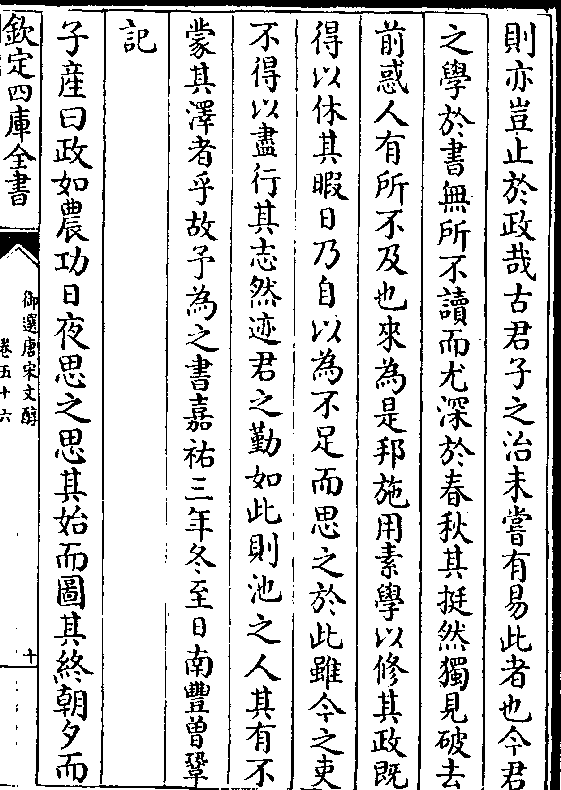 則亦豈止於政哉古君子之治未嘗有易此者也今君
之學於書無所不讀而尤深於春秋其挺然獨見破去
前惑人有所不及也來為是邦施用素學以修其政既
得以休其暇日乃自以為不足而思之於此雖今之吏
不得以盡行其志然迹君之勤如此則池之人其有不
蒙其澤者乎故予為之書嘉祐三年冬至日南豐曽鞏
記
子産曰政如農功日夜思之思其始而圖其終朝夕而
欽定四庫全書
御選唐宋文醇
卷五十六
十